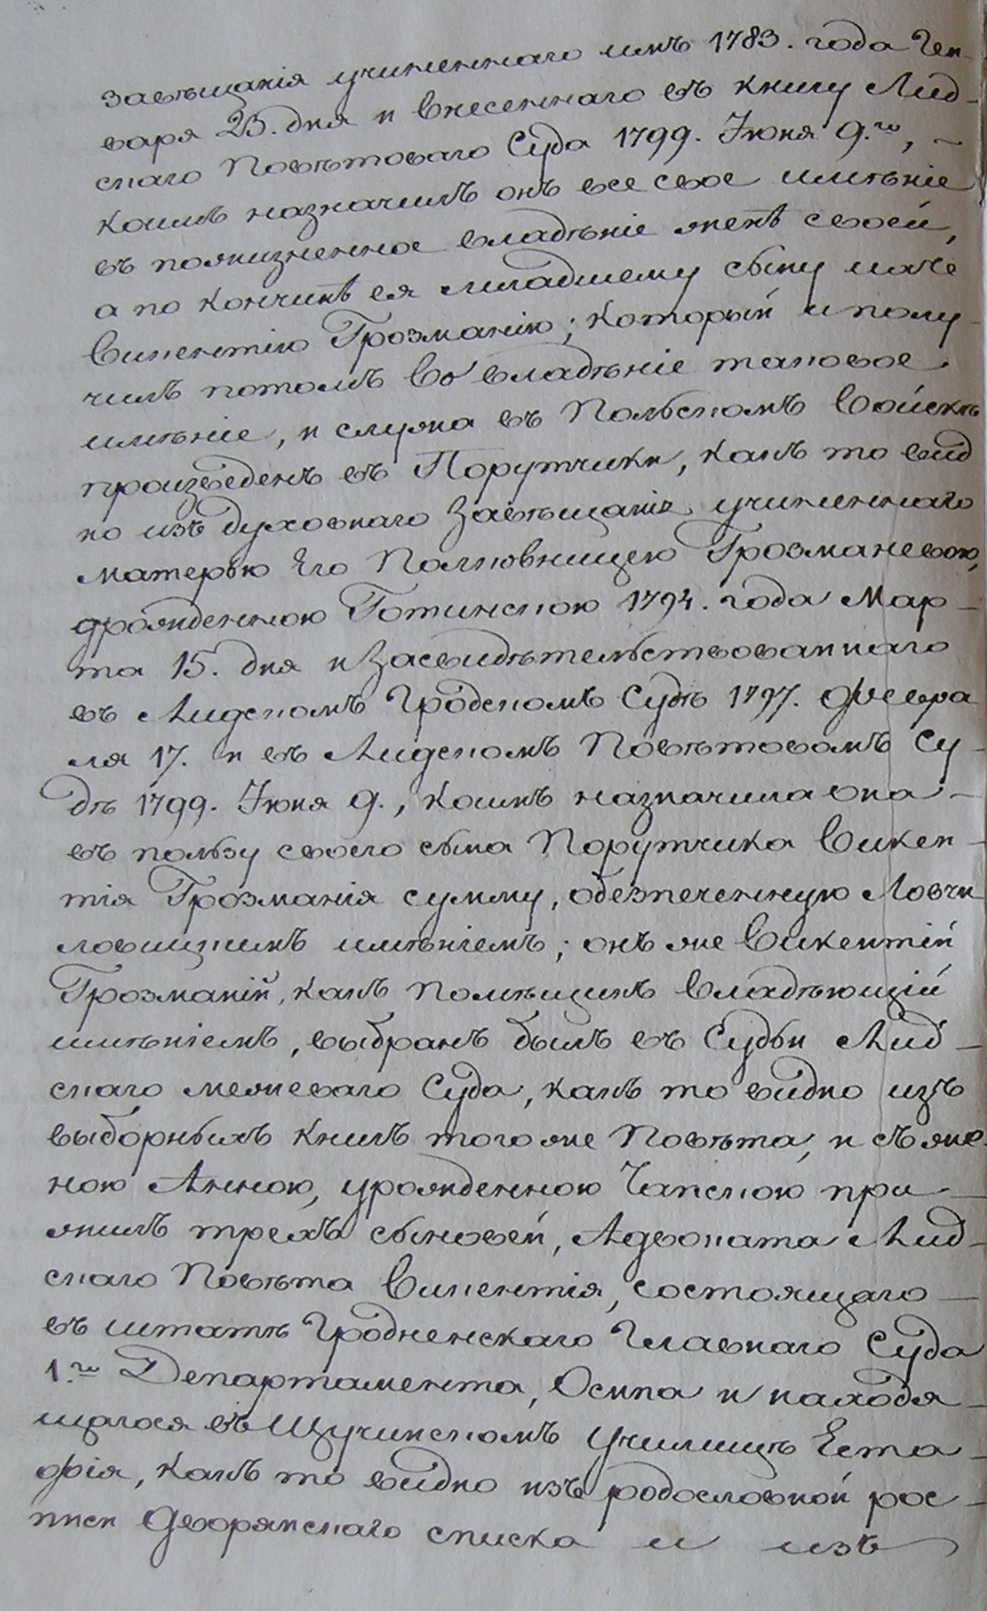 завѣщанія учиненнаго имъ 1783. года Ген-
варя 25. дня и внесеннаго въ книгу Лид-
скаго Повѣтоваго Суда 1799. Іюня 9.го, —
коимъ назначилъ онъ все свое имѣніе
въ пожизненное владѣніе женѣ своей,
а по кончинѣ ея младшему сыну
Викентію Грозманію; который и полу-
чилъ потомъ во владѣніе таковое
имѣніе, и служа въ Польскомъ Войскѣ
произведенъ въ Порутчики, какъ то вид
но изъ духовнаго Завѣщанія учиненнаго
матерью Его Полковницею Грозманевою,
урожденною Готинскою 1794. года Мар-
та 15. дня и Засвидѣтельствованнаго
въ Лидскомъ Гродскомъ Судѣ 1797. Февра
ля 17. и въ Лидскомъ Повѣтовомъ Су-
дѣ 1799. Іюня 9., коимъ назначила она —
въ пользу своего сына Порутчика Викен-
тія Грозманія сумму, обезпеченную Ловчи
ловщизнымъ имѣніемъ; онъ же Викентій
Грозманій, какъ Помѣщикъ владѣющій
имѣніемъ, выбранъ былъ въ Судьи Лид-
скаго межеваго Суда, какъ то видно изъ
выборныхъ книгъ того же Повѣта, и съ же-
ною Анною, урожденною Чапскою при-
жилъ трехъ сыновей, Адвоката Лид-
скаго Повѣта Викентія, состоящаго —
въ штатѣ Гродненскаго Главнаго Суда
1.го Департамента, Осипа и находя-
щагося въ Щучинскомъ Училищѣ Еста-
фія, какъ то видно изъ родословной рос-
писи Дворянскаго списка и изъ